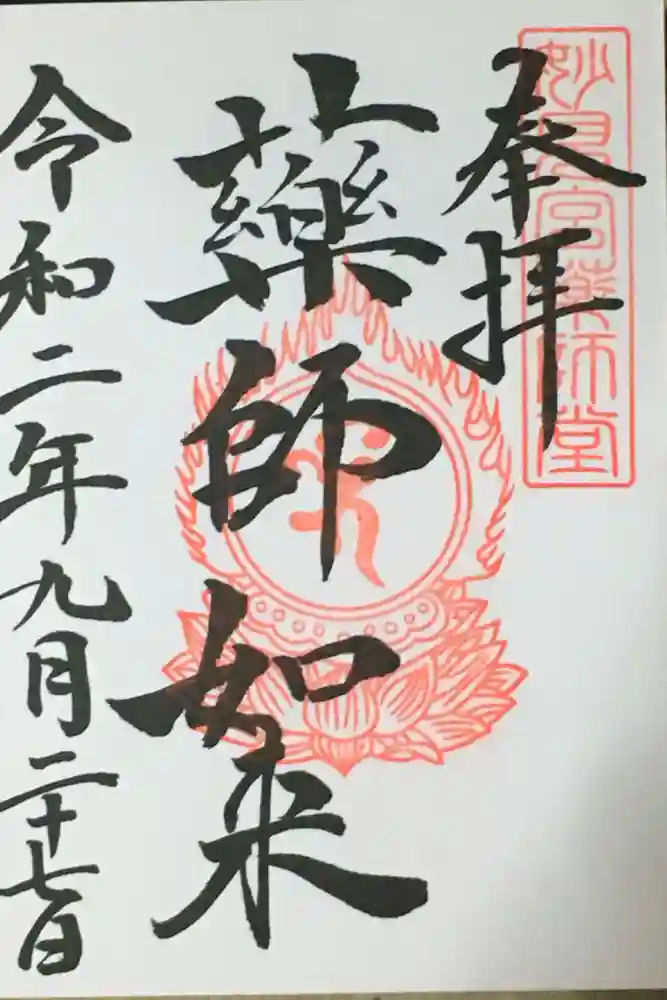 奉拝
妙見宮薬師堂
薬師如来
令和二年九月二十七日